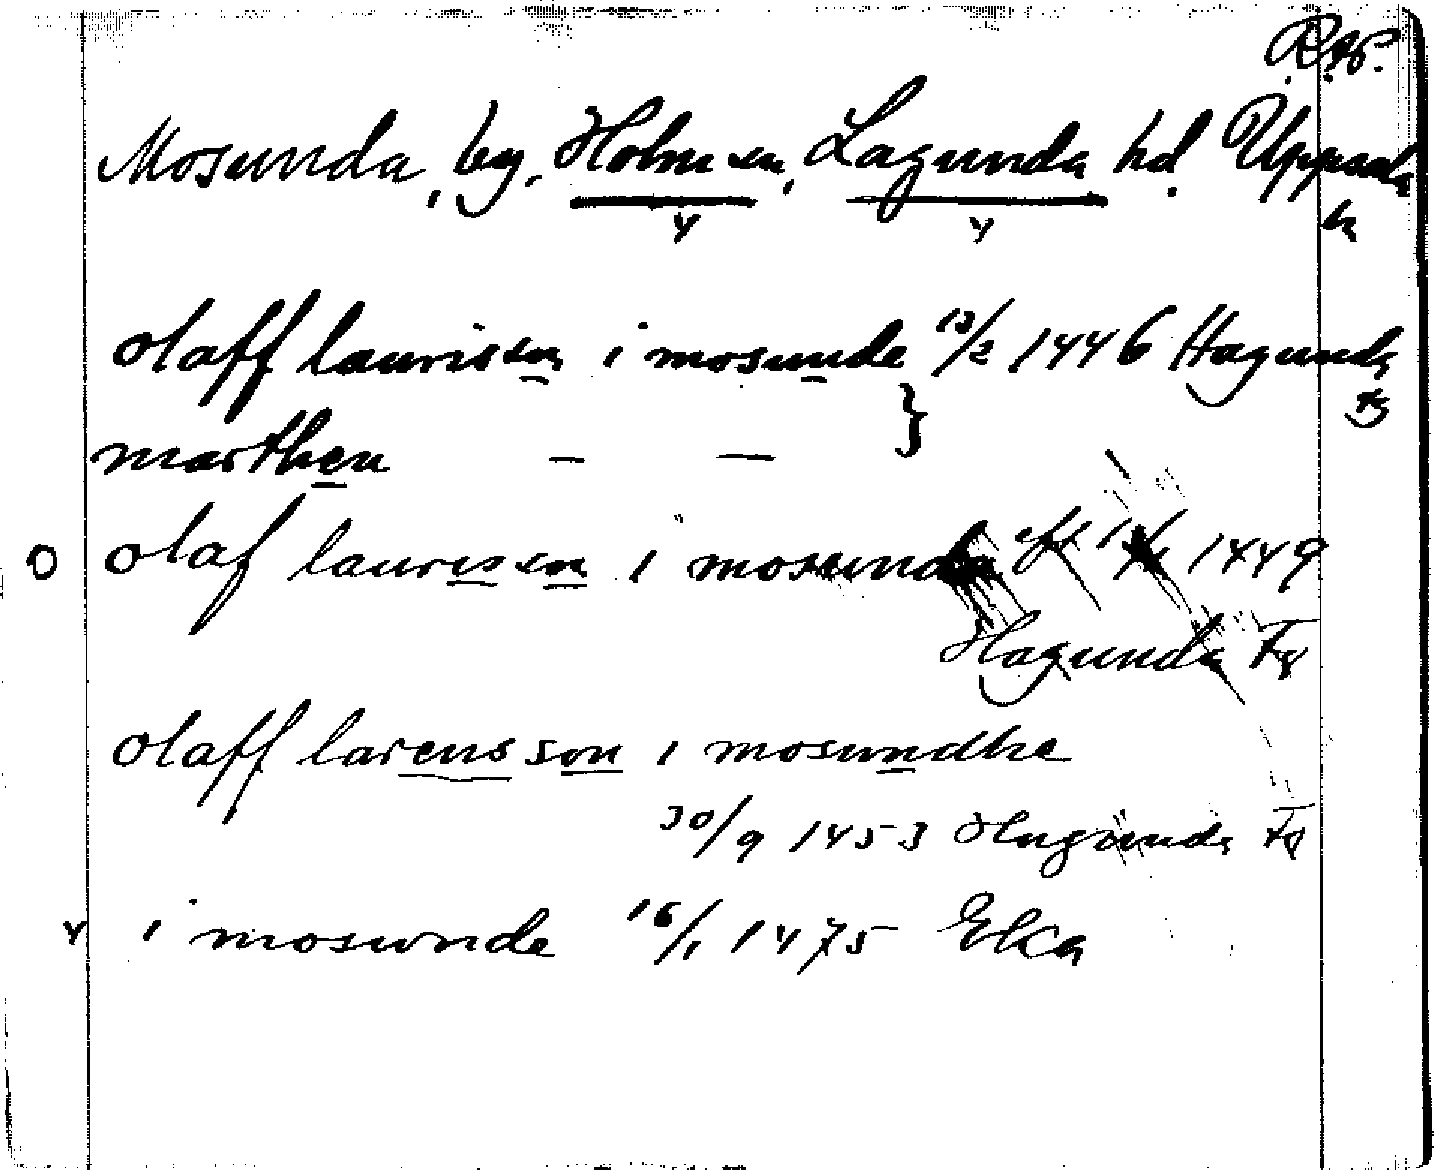 Mosunda, by, Holm sn, Lagunda hd. Uppsala
olaff laurisson i mosunde 13/2 1446 Hagunda
marthen — — }
O olaf laurissen i mosunda eft 1449
Hagunda Tg
olaff larensson i mosundhe
30/9 1453 Hagunda Tg
y i mosunde 16/1 1475 Eka